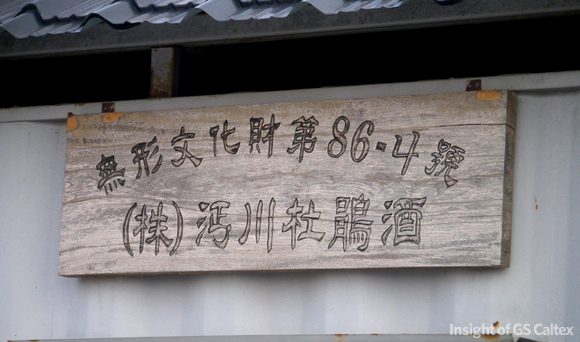 無形文化財第86-4號
(株)沔川杜鵑酒
Insight of GS Caltex